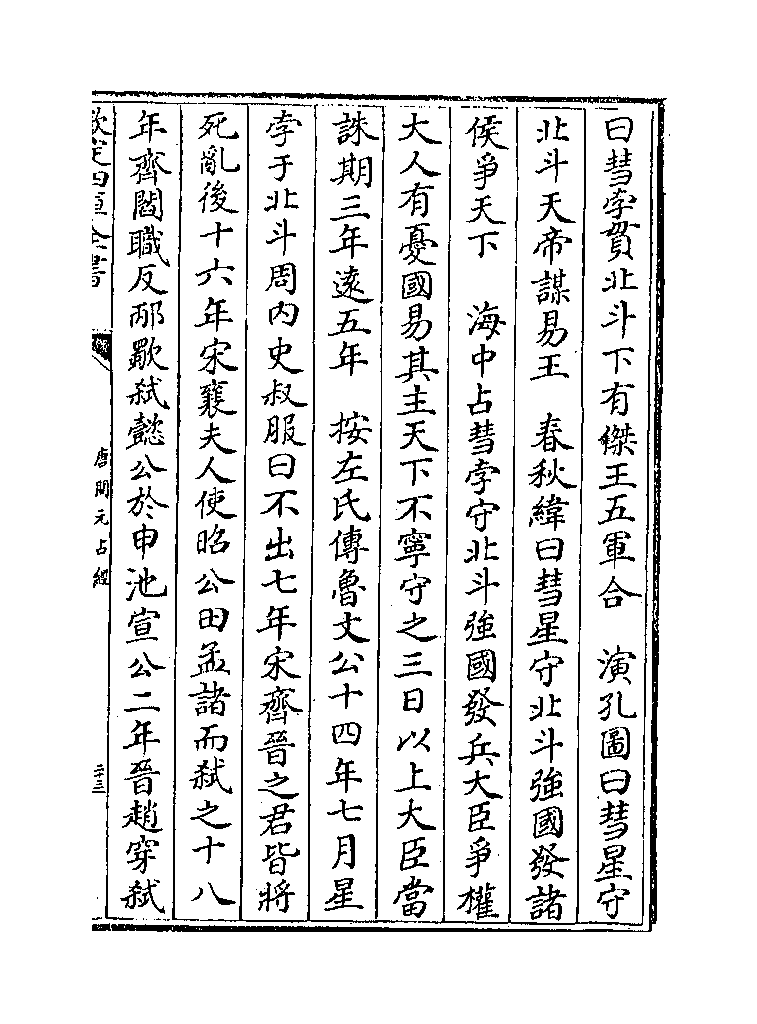 曰彗孛貫北斗下有傑王五軍合　演孔圖曰彗星守
北斗天帝謀易王　春秋緯曰彗星守北斗強國發諸
侯爭天下　海中占彗孛守北斗強國發兵大臣爭權
大人有憂國易其主天下不寧守之三日以上大臣當
誅期三年遠五年　按左氏傳魯文公十四年七月星
孛于北斗周内史叔服曰不出七年宋齊晉之君皆將
死亂後十六年宋襄夫人使昭公田孟諸而弑之十八
年齊閻職反邴歜弑懿公於申池宣公二年晉趙穿弑
欽定四庫全書
唐開元占經
二十三